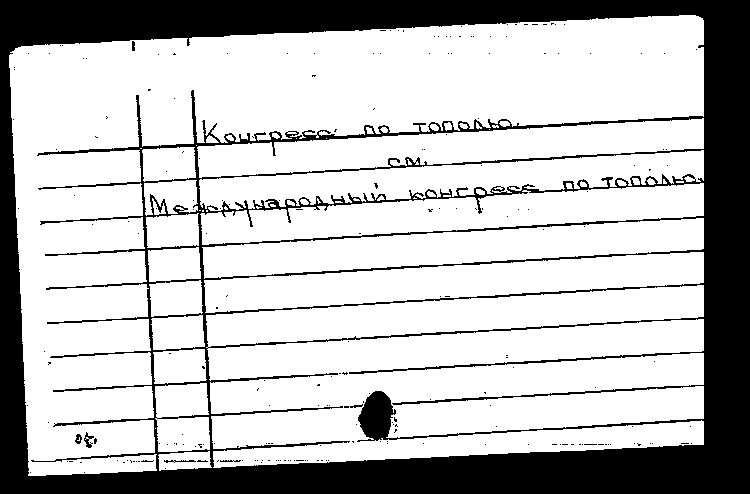 Конгресс по тополю.
см.
Международный конгресс по тополю.